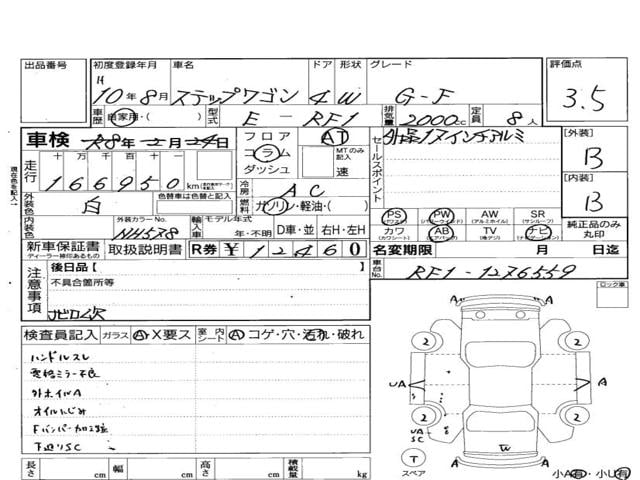 出品番号 初度登録年月 車名 ドア 形状 グレード 評価点
H
10年8月 ステップワゴン 4 W G-F 3.5
車歴 自家用・( ) 型式 E-RF1 排気量 2000cc 定員 8人
車検 R8年2月24日 フロア AT
コラム MTのみ記入
ダッシュ 速
セールスポイント 外品17インチアルミ
[外装]
B
[内装]
B
走行 十 万 千 百 十 一
166950 km
冷房 AC
外装色 白 色替車は色替と記入 燃料 ガソリン・軽油・( )
PS PW AW SR
(パワステ) (パワーウインド) (アルミホイル) (サンルーフ)
カワ AB TV ナビ
(カワシート) (エアバック) (地デジ) (ナビゲーション)
純正品のみ丸印
内装色 外装カラーNo. NH578 輸入車 モデル年式 年・不明 D車・並 右H・左H
新車保証書 取扱説明書 R券 ¥12460
ディーラー印あるもの
名変期限 月 日迄
車台No. RF1-1276559
注意事項
後日品[ ]
不具合箇所等
ナビロム欠
ロック車
検査員記入 ガラス A・X要ス 室内シート A コゲ・穴・汚れ・破れ
ハンドルスレ
電格ミラー不良
外ホイルA
オイルにじみ
Fバンパー加工跡
下廻りSC
A A
2 2
UA A A
2 2
UA
SC
T
スペア
W
A A
小A有・小U有
長さ cm 幅 cm 高さ cm 積載量 kg
現在色を記入